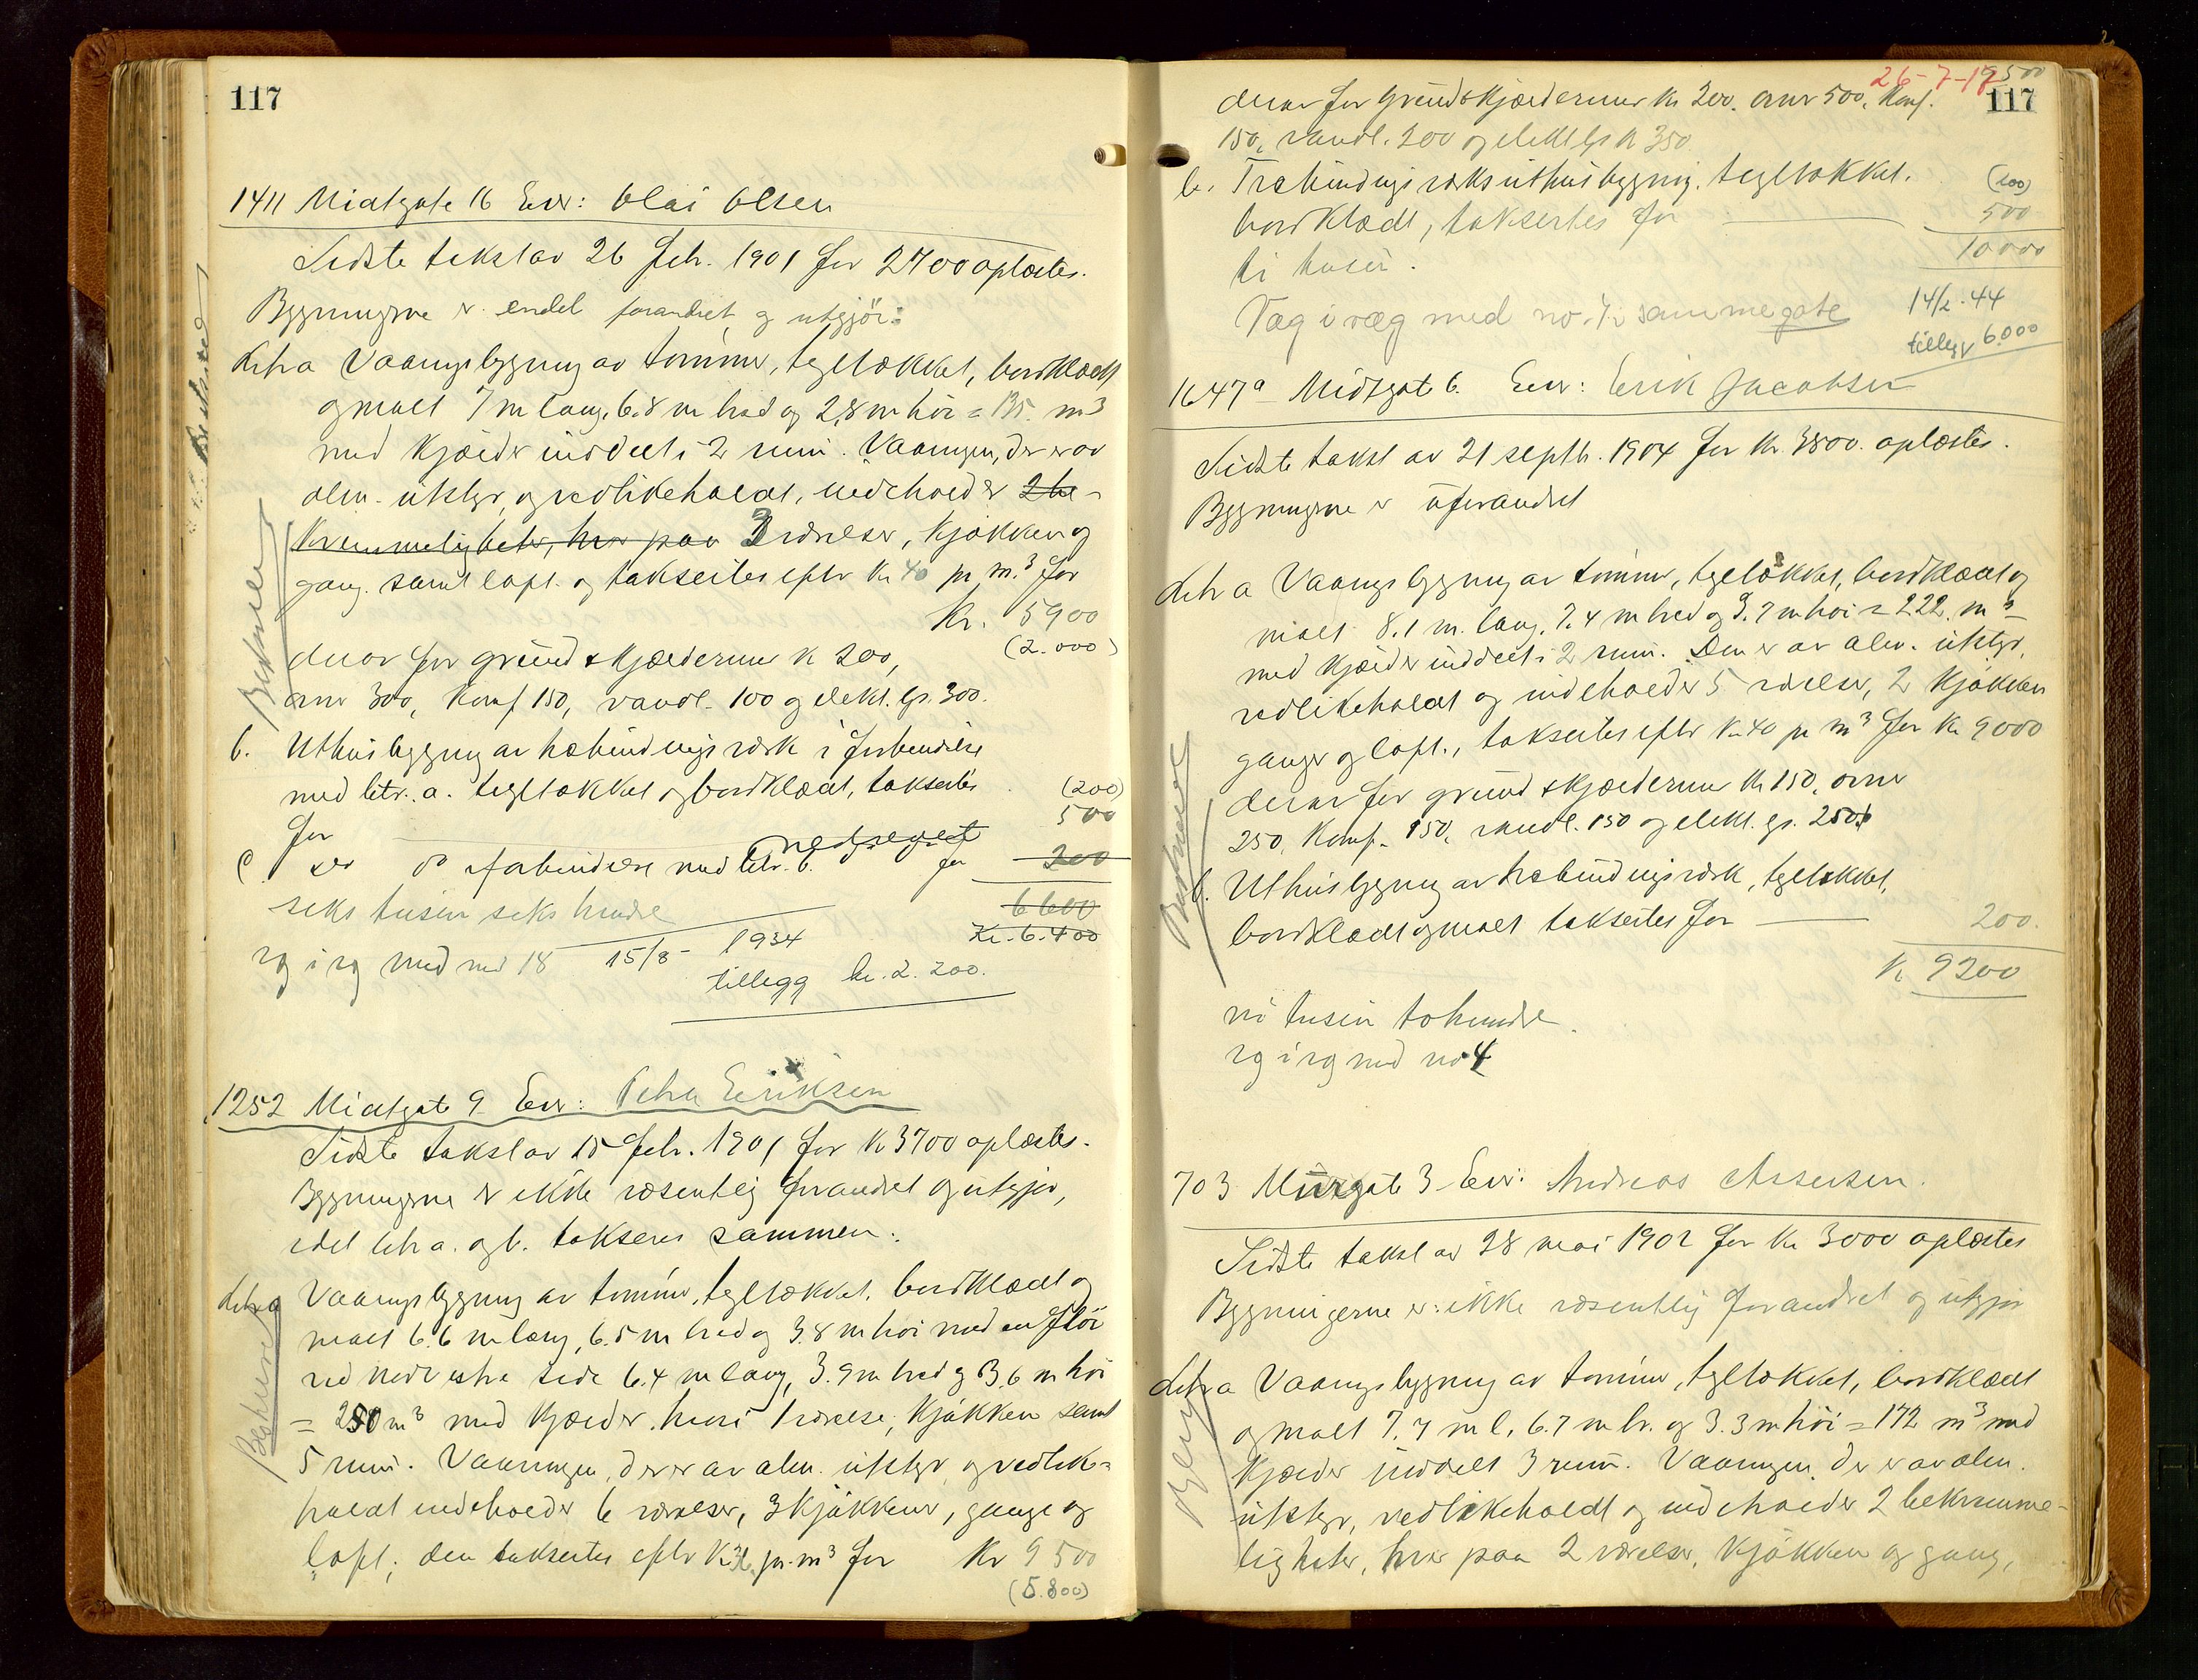 117
1411 Midtgate 16 Eier: Olai Olsen
Sidste takst av 26 febr. 1901 for 2700 oplæstes.
Bygningerne er endel forandret og utgjör:
Litra a Vaaningsbygning av tømmer, tegltækket, bordklædt
og malt 7 m lang, 6.8 m bred og 2,8 m høi = 135 m3
med kjælder inddelt i 2 rum. Vaaningen, der er av
alm. utstyr og vedlikeholdt, indeholder 2 be-
kvemmeligheter, hver paa 3 værelser, kjøkken og
gang samt loft og takseres efter kr 40 pr m.3 for
Kr. 5900
(2.000)
derav for grund & kjælderrum kr 200,
ovne 300, komf 150, vandl. 100 og elekt. lys 300.
b. Uthusbygning av træbindingsverk i forbindelse
med litr. a. tegltækket og bordklædt, takseres
(200)
for 500
nedrevet
c do i forbindelse med litr. b. for 200
seks tusen seks hundre 6600
Kr. 6.400
væg i væg med nr 18 15/8 - 1934
tillegg kr. 2.200.
1252 Midtgate 9 Eier: Petra Eriksen
Sidste takst av 15 febr. 1901 for kr 3700 oplæstes.
Bygningerne er ikke væsentlig forandret og utgjør,
idet litr a. og b. takseres sammen:
Litr a Vaaningsbygning av tømmer, tegltækket, bordklædt og
malt 6.6 m lang, 6.5 m bred og 3.8 m høi med en fløi
ved nordvestre side 6.4 m lang, 3.9 m bred og 3.6 m høi
= 250 m3 med kjælder, hvori 1 værelse, kjøkken samt
5 rum. Vaaningen, der er av alm. utstyr og vedlike-
holdt indeholder 6 værelser, 3 kjøkkener, gange og
loft; den takseres efter kr 36 pr. m3 for Kr 9500
(5.800)
26-7-17
9500
117
derav for grund & kjælderrum kr 200. ovner 500, Komf.
150, vandl. 200 og elekt lys kr 350
b. Træbindingsverks uthusbygning, tegltækket,
(200)
bordklædt, takseres for 500
10000
ti tusen.
Væg i væg med no. 4 samme gate
14/2.44
tillegg 6.000
1647a Midtgate 6. Eier: Erik Jacobsen
Sidste takst av 21 septb. 1904 for kr. 3800. oplæstes.
Bygningerne er uforandret
Litr a Vaaningsbygning av tømmer, tegltækket, bordklædt og
malt 8.1 m. lang, 7.4 m bred og 3.7 m høi = 222 m3
med kjælder inddelt i 2 rum. Den er av alm. utstyr,
vedlikeholdt og indeholder 5 værelser, 2 kjøkken
ganger og loft, takseres efter kr 40 pr m3 for kr 9000
derav for grund & kjælderrum kr 150, ovner
250, Komf. 150, vandl. 150 og elekt. lys. 250.
b. Uthusbygning av træbindingsverk, tegltækket,
bordklædt og malt takseres for 200.
kr 9200
ni tusen tohundre.
væg i væg med no 4
703 Murgate 3 Eier: Andreas Assersen.
Sidste takst av 28 mai 1902 for kr 3000 oplæstes
Bygningerne er ikke væsentlig forandret og utgjør
Litra a Vaaningsbygning av tømmer, tegltækket, bordklædt
og malt 7.7 m l, 6.7 m br. og 3.3 m høi = 172 m3 med
kjælder inddelt 3 rum. Vaaningen, der er av alm.
utstyr, vedlikeholdt og indeholder 2 bekvemme-
ligheter, hver paa 2 værelser, kjøkken og gang,